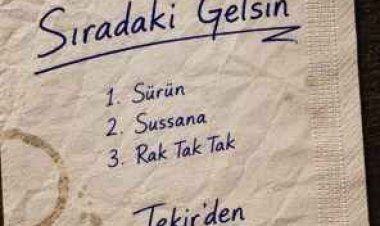 Sıradaki Gelsin
1. Sürün
2. Sussana
3. Rak Tak Tak
Tekir'den